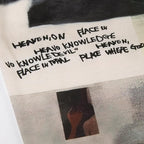 HEAVEN, ON PLACE IN
HEAVO KNOWLEDGE
NO KNOWLEDEVIL" HEAVEN,
PLACE IN PLACE WHERE GOD